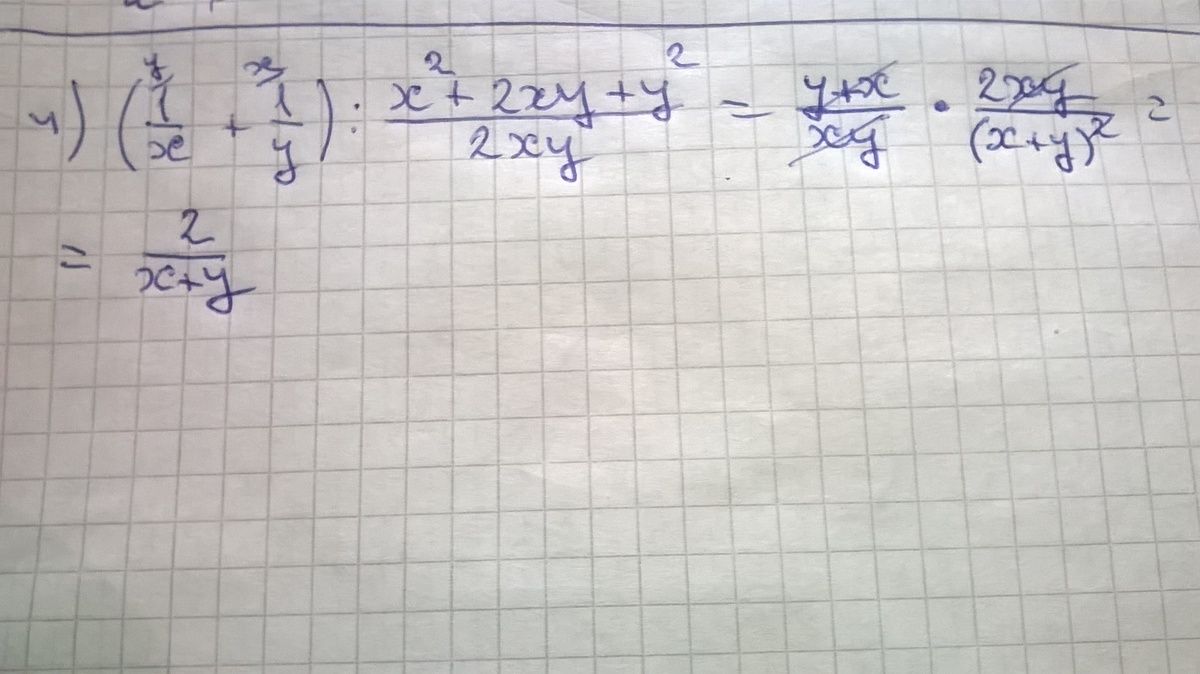 4) (1/x + 1/y) : (x² + 2xy + y²)/(2xy) = (y+x)/(xy) · (2xy)/(x+y)² =
= 2/(x+y)